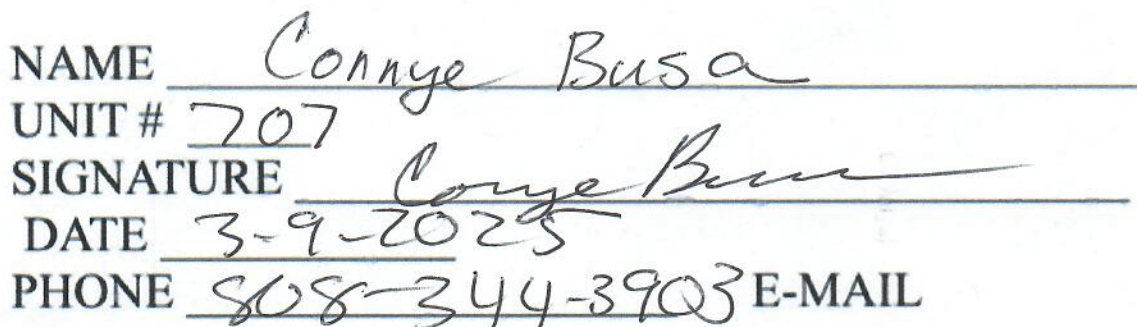 NAME Connye Busa
UNIT # 707
SIGNATURE Connye Busa
DATE 3-9-2025
PHONE 808-344-3903 E-MAIL